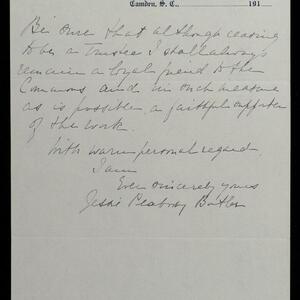 Camden, S. C., 191
Be sure that although ceasing
to be a Trustee I shall always
remain a loyal friend to the
Commons and in such measure
as is possible a faithful supporter
of the work.
With warm personal regard,
I am
Ever sincerely yours
Jessie Peabody Butler